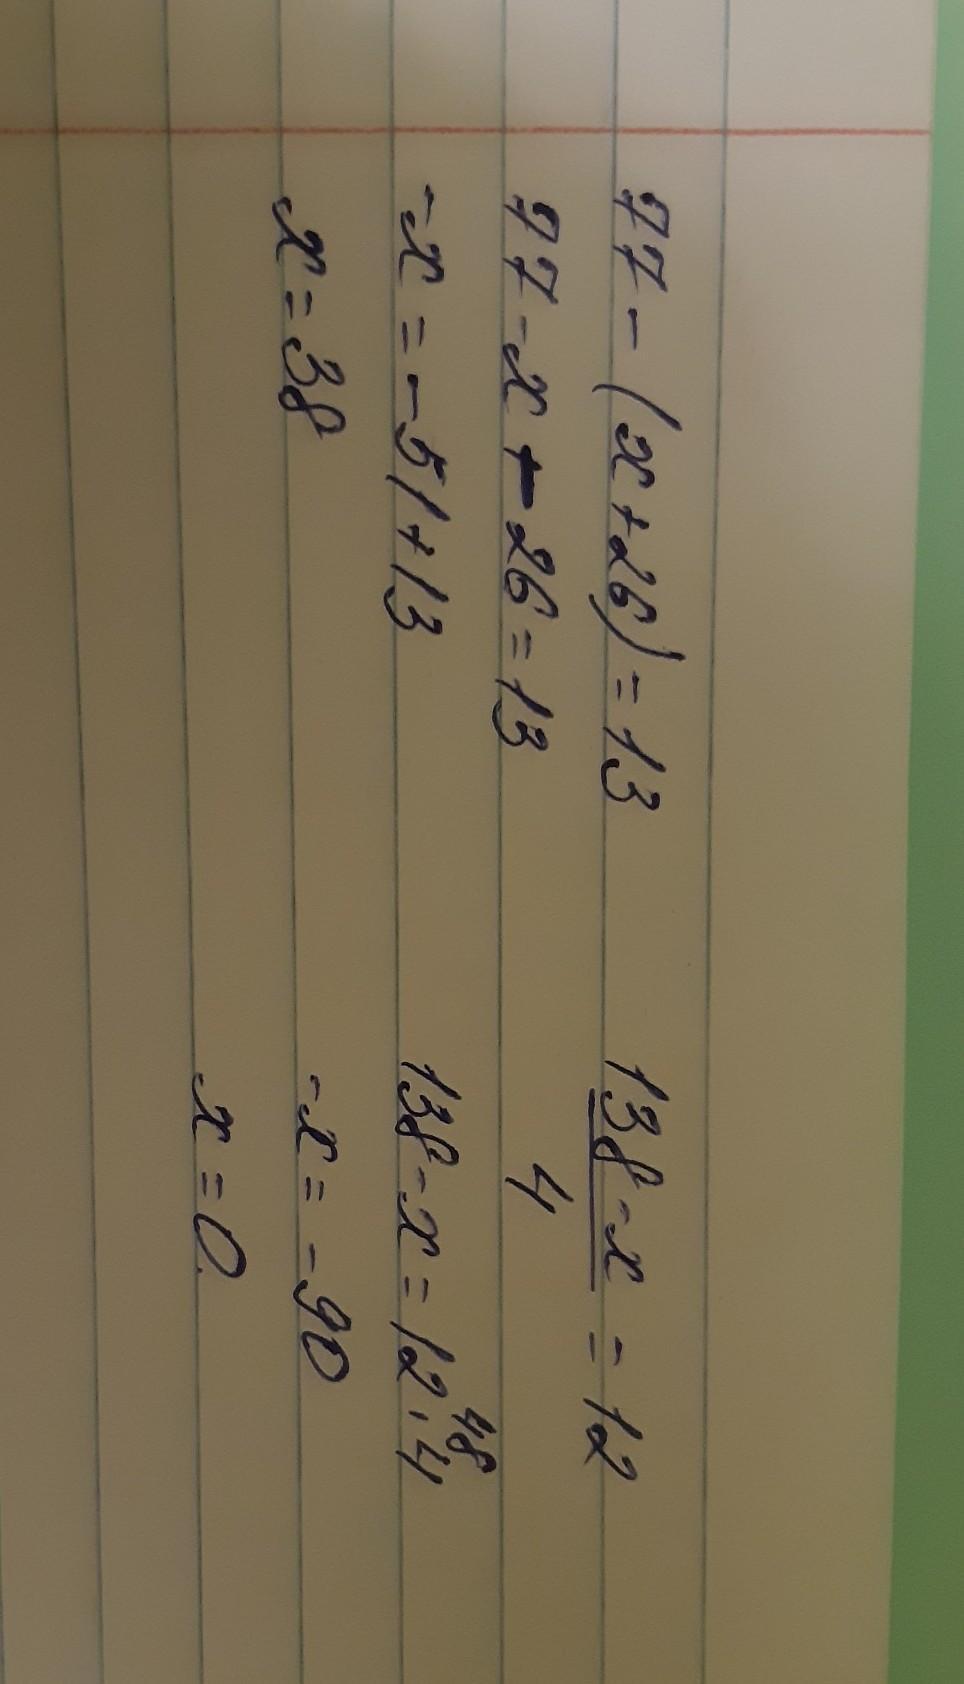 77 - (x + 26) = 13
77 - x - 26 = 13
-x = -51 + 13
x = 38
138 - x = 12
4
48
138 - x = 12 · 4
-x = -90
x = 0